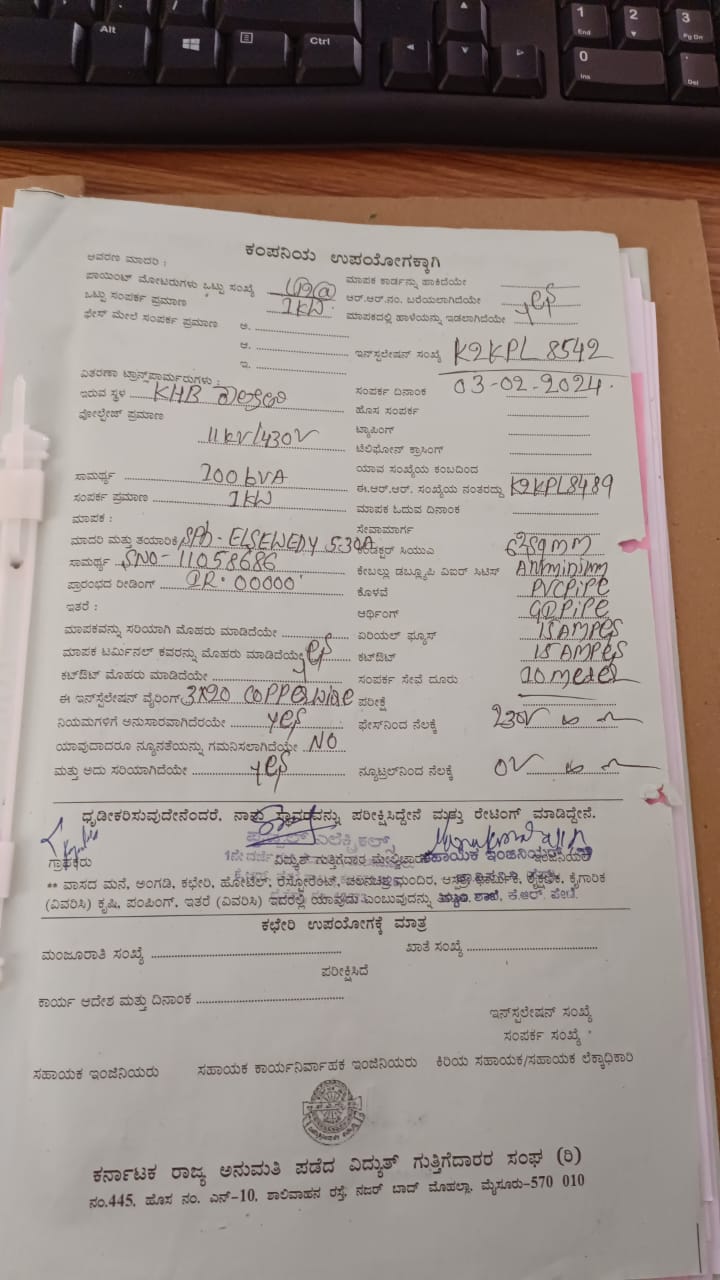 Alt
Ctrl
1
End
2
3
Pg Dn
0
Ins
.
Del
ಕಂಪನಿಯ ಉಪಯೋಗಕ್ಕಾಗಿ
ಆವರಣ ಮಾದರಿ :
ಪಾಯಿಂಟ್ ಮೋಟರುಗಳು ಒಟ್ಟು ಸಂಖ್ಯೆ ಮಾಪಕ ಕಾರ್ಡನ್ನು ಹಾಕಿದೆಯೇ
ಒಟ್ಟು ಸಂಪರ್ಕ ಪ್ರಮಾಣ 1KW ಆರ್.ಆರ್.ನಂ. ಬರೆಯಲಾಗಿದೆಯೇ
ಫೇಸ್ ಮೇಲೆ ಸಂಪರ್ಕ ಪ್ರಮಾಣ ಅ. ಮಾಪಕದಲ್ಲಿ ಹಾಳೆಯನ್ನು ಇಡಲಾಗಿದೆಯೇ yes
ಆ. ಇನ್‌ಸ್ಟಲೇಷನ್ ಸಂಖ್ಯೆ K2KPL 8542
ಇ.
ವಿತರಣಾ ಟ್ರಾನ್ಸ್‌ಪಾರ್ಮರುಗಳು :
ಇರುವ ಸ್ಥಳ KHB ಸಂಪರ್ಕ ದಿನಾಂಕ 03-02-2024.
ವೋಲ್ಟೇಜ್ ಪ್ರಮಾಣ ಹೊಸ ಸಂಪರ್ಕ
11KV/430V ಟ್ಯಾಪಿಂಗ್
ಟೆಲಿಫೋನ್ ಕ್ರಾಸಿಂಗ್
ಸಾಮರ್ಥ್ಯ 100 KVA ಯಾವ ಸಂಖ್ಯೆಯ ಕಂಬದಿಂದ
ಸಂಪರ್ಕ ಪ್ರಮಾಣ 1KW ಈ.ಆರ್.ಆರ್. ಸಂಖ್ಯೆಯ ನಂತರದ್ದು K2KPL8489
ಮಾಪಕ : ಮಾಪಕ ಓದುವ ದಿನಾಂಕ
ಸೇವಾಮಾರ್ಗ
ಮಾದರಿ ಮತ್ತು ತಯಾರಿಕೆ SPD- ELSEWEDY 5-30A ಕಂಡಕ್ಟರ್ ಸಿಯುವಿ
ಸಾಮರ್ಥ್ಯ SNO-11058686 ಕೇಬಲ್ಲು ಡಬ್ಲ್ಯೂಪಿ ವಿಐರ್ ಸಿಟಿಸ್
ಪ್ರಾರಂಭದ ರೀಡಿಂಗ್ IR. 00000 ಕೊಳವೆ PVC PIPE
ಇತರೆ : ಆರ್ಥಿಂಗ್ GI PIPE
ಮಾಪಕವನ್ನು ಸರಿಯಾಗಿ ಮೊಹರು ಮಾಡಿದೆಯೇ ಏರಿಯಲ್ ಫ್ಯೂಸ್ 15 AMPES
ಮಾಪಕ ಟರ್ಮಿನಲ್ ಕವರನ್ನು ಮೊಹರು ಮಾಡಿದೆಯೇ yes ಕಟ್‌ಔಟ್ 15 AMPES
ಕಟ್‌ಔಟ್ ಮೊಹರು ಮಾಡಿದೆಯೇ ಸಂಪರ್ಕ ಸೇವೆ ದೂರು
ಈ ಇನ್‌ಸ್ಟಲೇಷನ್ ವೈರಿಂಗ್ 3x20 COPPER WIRE ಪರೀಕ್ಷೆ
ನಿಯಮಗಳಿಗೆ ಅನುಸಾರವಾಗಿದೆರಯೇ yes ಫೇಸ್‌ನಿಂದ ನೆಲಕ್ಕೆ 230V
ಯಾವುದಾದರೂ ನ್ಯೂನತೆಯನ್ನು ಗಮನಿಸಲಾಗಿದೆಯೇ NO
ಮತ್ತು ಅದು ಸರಿಯಾಗಿದೆಯೇ yes ನ್ಯೂಟ್ರಲ್‌ನಿಂದ ನೆಲಕ್ಕೆ 0V
ಧೃಡೀಕರಿಸುವುದೇನೆಂದರೆ, ನಾನು ಸ್ಥಾವರವನ್ನು ಪರೀಕ್ಷಿಸಿದ್ದೇನೆ ಮತ್ತು ರೇಟಿಂಗ್ ಮಾಡಿದ್ದೇನೆ.
ಎಲೆಕ್ಟ್ರಿಕಲ್ಸ್
ಗ್ರಾಹಕರು ವಿದ್ಯುತ್ ಗುತ್ತಿಗೆದಾರ ಸಹಾಯಕ ಇಂಜಿನಿಯರ್
** ವಾಸದ ಮನೆ, ಅಂಗಡಿ, ಕಛೇರಿ, ಹೋಟೆಲ್, ರೆಸ್ಟೋರೆಂಟ್, ಚಲನಚಿತ್ರ ಮಂದಿರ, ಕೈಗಾರಿಕ
(ವಿವರಿಸಿ) ಕೃಷಿ, ಪಂಪಿಂಗ್, ಇತರೆ (ವಿವರಿಸಿ) ಇದರಲ್ಲಿ ಯಾವುದು ಎಂಬುವುದನ್ನು ಕೆ.ಆರ್. ಪೇಟೆ.
ಕಛೇರಿ ಉಪಯೋಗಕ್ಕೆ ಮಾತ್ರ
ಮಂಜೂರಾತಿ ಸಂಖ್ಯೆ ಖಾತೆ ಸಂಖ್ಯೆ
ಪರೀಕ್ಷಿಸಿದೆ
ಕಾರ್ಯ ಆದೇಶ ಮತ್ತು ದಿನಾಂಕ
ಇನ್‌ಸ್ಟಲೇಷನ್ ಸಂಖ್ಯೆ
ಸಂಪರ್ಕ ಸಂಖ್ಯೆ
ಸಹಾಯಕ ಇಂಜಿನಿಯರು ಸಹಾಯಕ ಕಾರ್ಯನಿರ್ವಾಹಕ ಇಂಜಿನಿಯರು ಕಿರಿಯ ಸಹಾಯಕ/ಸಹಾಯಕ ಲೆಕ್ಕಾಧಿಕಾರಿ
ಕರ್ನಾಟಕ ರಾಜ್ಯ ಅನುಮತಿ ಪಡೆದ ವಿದ್ಯುತ್ ಗುತ್ತಿಗೆದಾರರ ಸಂಘ (ರಿ)
ನಂ.445, ಹೊಸ ನಂ. ಎನ್-10, ಶಾಲಿವಾಹನ ರಸ್ತೆ, ನಜರ್ ಬಾದ್ ಮೊಹಲ್ಲಾ, ಮೈಸೂರು-570 010